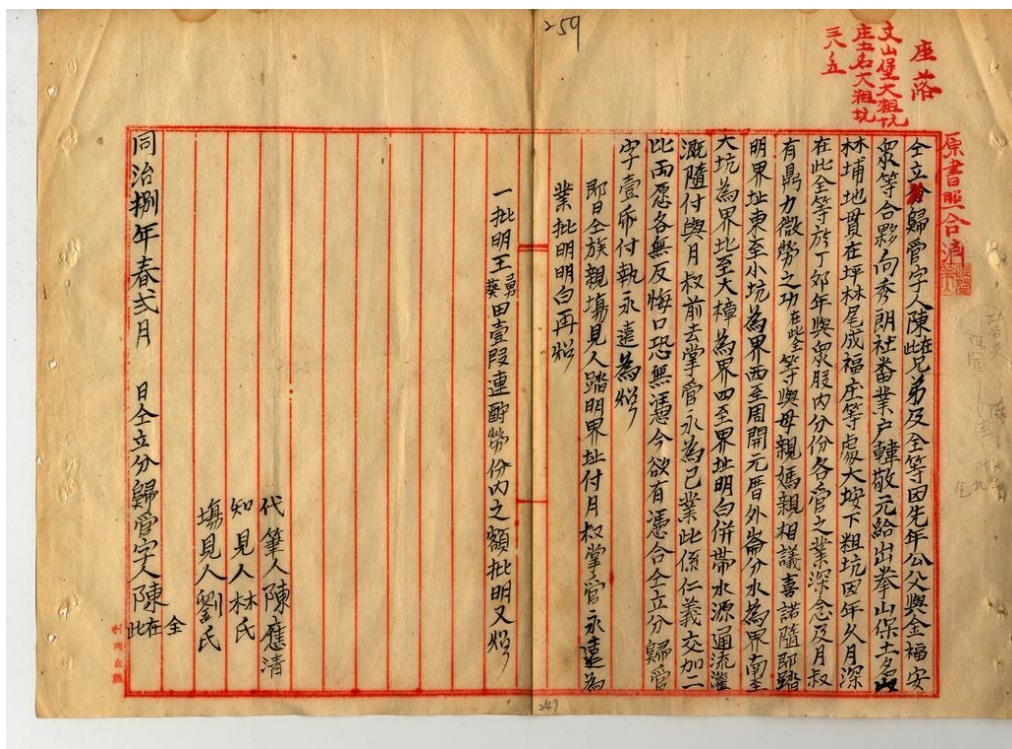 259
座落
文山堡大粗坑
庄土名大粗坑
三八ノ五
原書照合濟
仝立分歸管字人陳在此兄弟及全等因先年公父與金福安
衆等合夥向秀朗社番業户韓敬元給出拳山保土名山
林埔地貫在坪林尾成福庄等處大垵下粗坑因年久月深
在此全等於丁卯年與衆股內分份各管之業深念及月叔
有鼎力微勞之功在此全等與母親媽親相議喜諾隨即踏
明界址東至小坑為界西至周開元厝外崙分水為界南至
大坑為界北至大樟為界四至界址明白併帶水源通流灌
溉隨付與月叔前去掌管永為己業此係仁義交加二
比両愿各無反悔口恐無憑今欲有憑合仝立分歸管
字壹紙付執永遠為炤
即日仝族親塲見人踏明界址付月叔掌管永遠為
業批明明白再炤
一批明王勇葵田壹段連酧勞份內之額批明又炤
代筆人陳應清
知見人林氏
塲見人劉氏
同治捌年春弍月 日仝立分歸管字人陳在此全
247